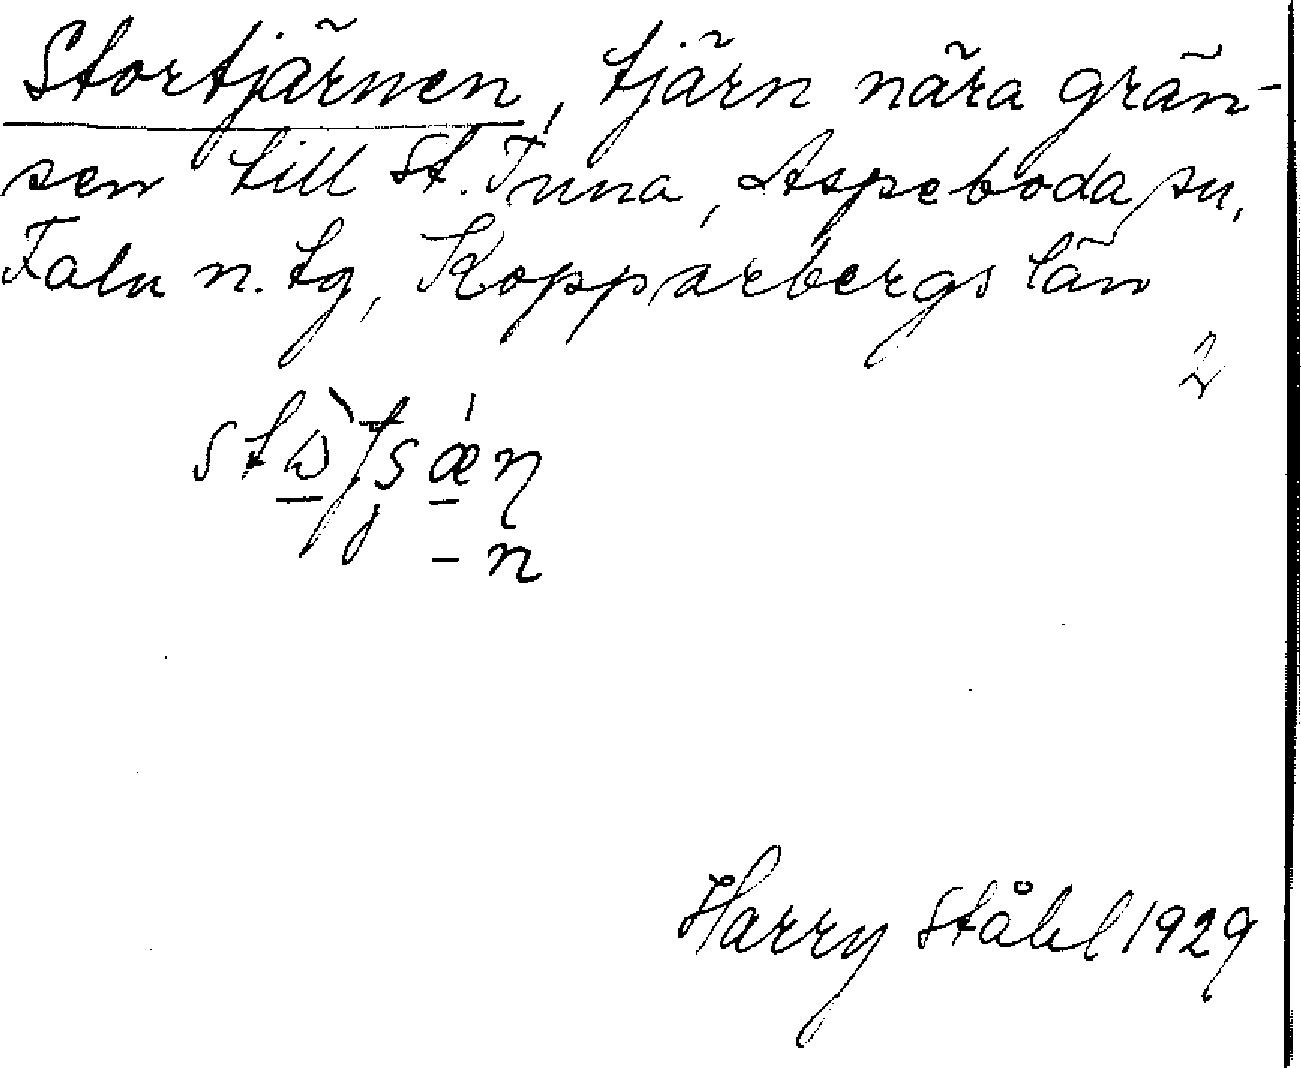 Stortjärnen, tjärn nära grän-
sen till St. Tuna, Aspeboda sn,
Falu n. tg, Kopparbergs län
2
- n
Harry Ståhl 1929